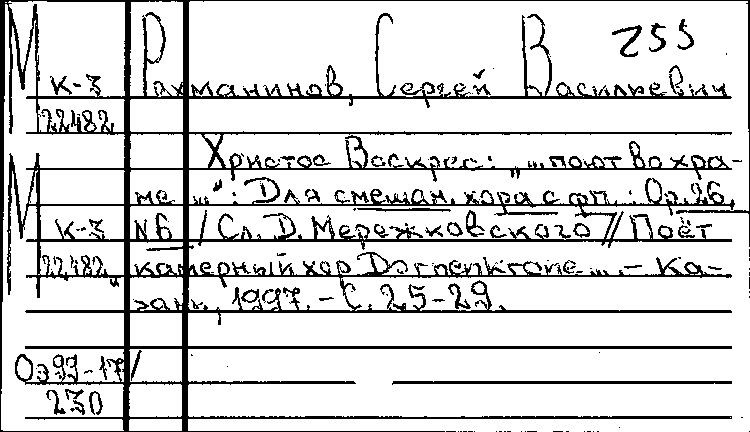 255
М
к-3
22482
Рахманинов, Сергей Васильевич
Христос Воскрес: „...поют во хра-
ме ...“: Для смешан. хора с фп. : Ор.26,
N6 / Сл. Д. Мережковского // Поёт
камерный хор ... – Ка-
зань, 1997. – С. 25-29.
М
к-3
22482
Оэ99-17/
230